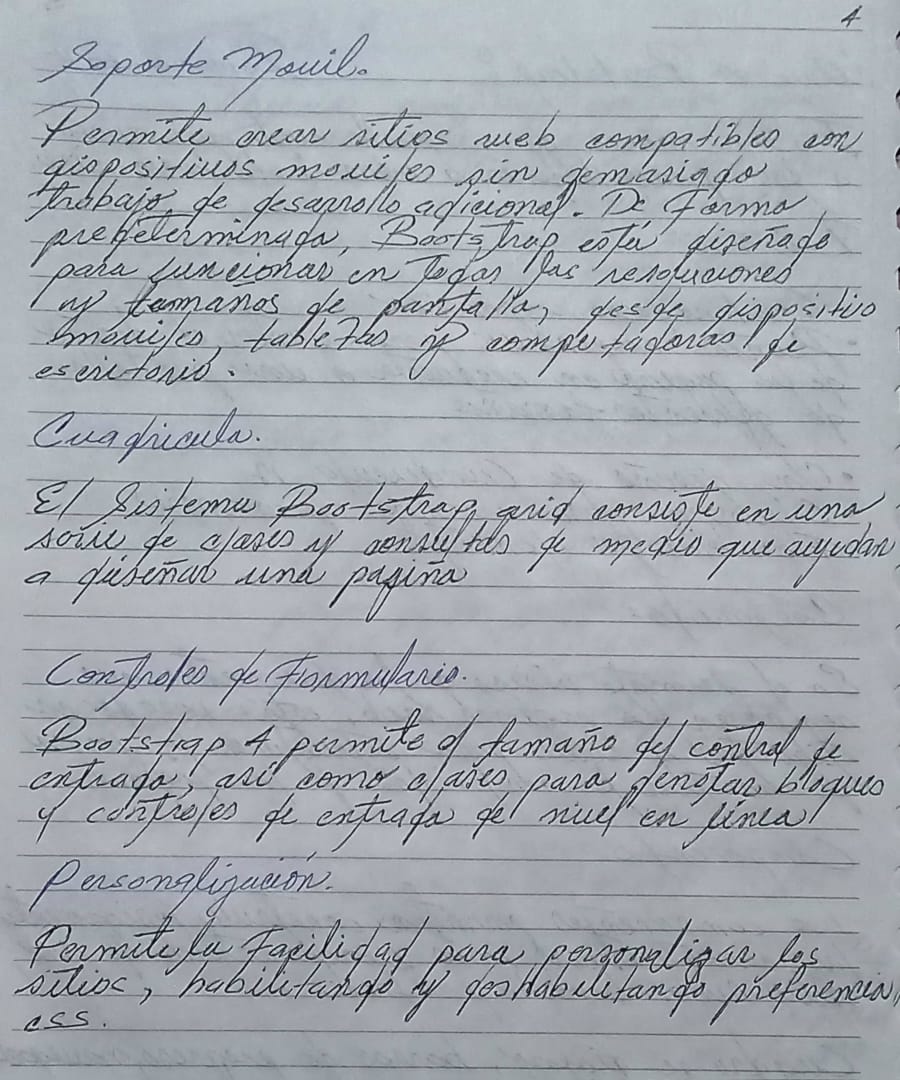 4
Soporte Movil.
Permite crear sitios web compatibles con
dispositivos moviles sin demasiado
trabajo de desarrollo adicional. De Forma
predeterminada, Bootstrap está diseñado
para funcionar en Todas las resoluciones
y tamaños de pantalla, desde dispositivo
moviles, tabletas y computadoras de
escritorio.
Cuadricula.
El Sistema Bootstrap grid consiste en una
serie de clases y consultas de medio que ayudan
a diseñar una pagina
Controles de Formulario.
Bootstrap 4 permite el tamaño del control de
entrada, así como clases para denotar bloques
y controles de entrada de nivel en línea
Personalización.
Permite la Facilidad para personalizar los
sitios, habilitando y deshabilitando preferencia
css.